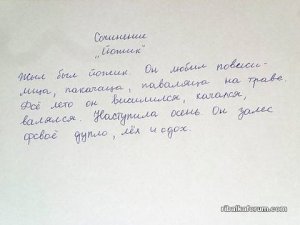 Сочинение
„Йожик"
Жыл был йожик. Он любил повесили-
лица, пакачаца, паваляца на траве.
Фсё лето он висилился, качался,
валялся. Наступила осень. Он залес
фсваё дупло, лёх и сдох.
ribalkaforum.com